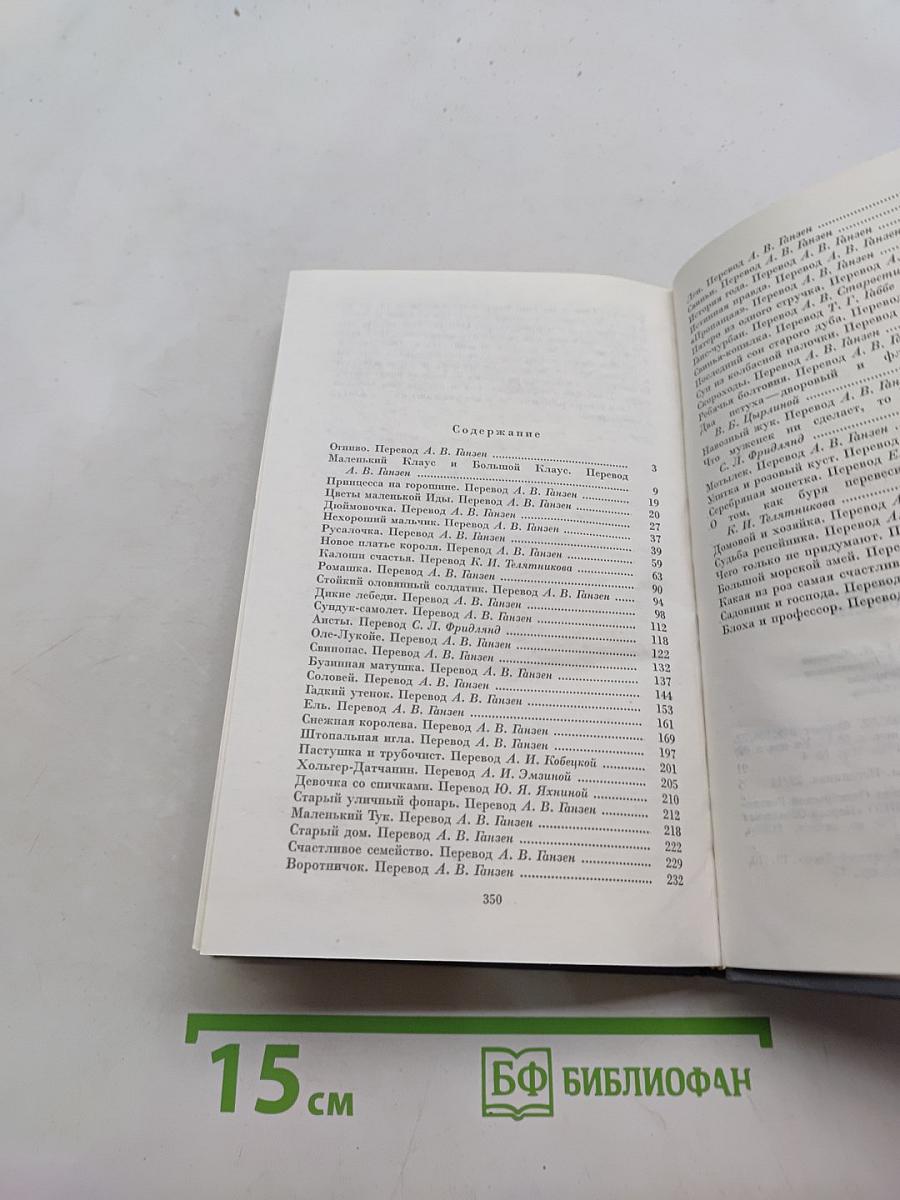 Содержание
Огниво. Перевод А. В. Ганзен 3
Маленький Клаус и Большой Клаус. Перевод
А. В. Ганзен 9
Принцесса на горошине. Перевод А. В. Ганзен 19
Цветы маленькой Иды. Перевод А. В. Ганзен 20
Дюймовочка. Перевод А. В. Ганзен 27
Нехороший мальчик. Перевод А. В. Ганзен 37
Русалочка. Перевод А. В. Ганзен 39
Новое платье короля. Перевод А. В. Ганзен 59
Калоши счастья. Перевод К. И. Телятникова 63
Ромашка. Перевод А. В. Ганзен 90
Стойкий оловянный солдатик. Перевод А. В. Ганзен 94
Дикие лебеди. Перевод А. В. Ганзен 98
Сундук-самолет. Перевод А. В. Ганзен 112
Аисты. Перевод С. Л. Фридлянд 118
Оле-Лукойе. Перевод А. В. Ганзен 122
Свинопас. Перевод А. В. Ганзен 132
Бузинная матушка. Перевод А. В. Ганзен 137
Соловей. Перевод А. В. Ганзен 144
Гадкий утенок. Перевод А. В. Ганзен 153
Ель. Перевод А. В. Ганзен 161
Снежная королева. Перевод А. В. Ганзен 169
Штопальная игла. Перевод А. В. Ганзен 197
Пастушка и трубочист. Перевод А. И. Кобецкой 201
Хольгер-Датчанин. Перевод А. И. Эмзиной 205
Девочка со спичками. Перевод Ю. Я. Яхниной 210
Старый уличный фонарь. Перевод А. В. Ганзен 212
Маленький Тук. Перевод А. В. Ганзен 218
Старый дом. Перевод А. В. Ганзен 222
Счастливое семейство. Перевод А. В. Ганзен 229
Воротничок. Перевод А. В. Ганзен 232
350
Лен. Перевод А. В. Ганзен
Свиньи. Перевод А. В. Ганзен
История года. Перевод А. В. Ганзен
Истинная правда. Перевод А. В. Ганзен
«Пропащая». Перевод А. В. Ганзен
Пятеро из одного стручка. Перевод А.
Ганс-чурбан. Перевод А. В. Старости
Свинья-копилка. Перевод Т. Г. Габбе
Последний сон старого дуба. Перевод
Суп из колбасной палочки. Перевод
Скороходы. Перевод А. В. Ганзен
Ребячья болтовня. Перевод А. В. Га
Два петуха — дворовый и фл
В. Б. Цырлиной
Навозный жук. Перевод А. В. Ган
Что муженек ни сделает, то
С. Л. Фридлянд
Мотылек. Перевод А. В. Ганзен
Улитка и розовый куст. Перевод
Серебряная монетка. Перевод Е
О том, как буря перевеси
К. И. Телятникова
Домовой и хозяйка. Перевод А
Судьба репейника. Перевод А.
Чего только не придумают. П
Большой морской змей. Пере
Какая из роз самая счастлив
Садовник и господа. Перевод
Блоха и профессор. Перевод
15 см
БФ БИБЛИОФАН